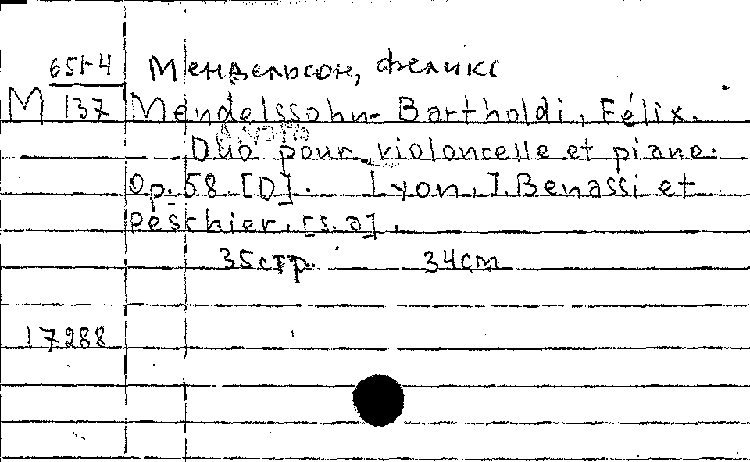 651-4 Мендельсон, Феликс
M 137 Mendelssohn-Bartholdi, Félix.
Duo pour violoncelle et piano.
Op. 58. [D]. Lyon, J. Benassi et
Peschier. [s.a].
35стр. 34cm
17288